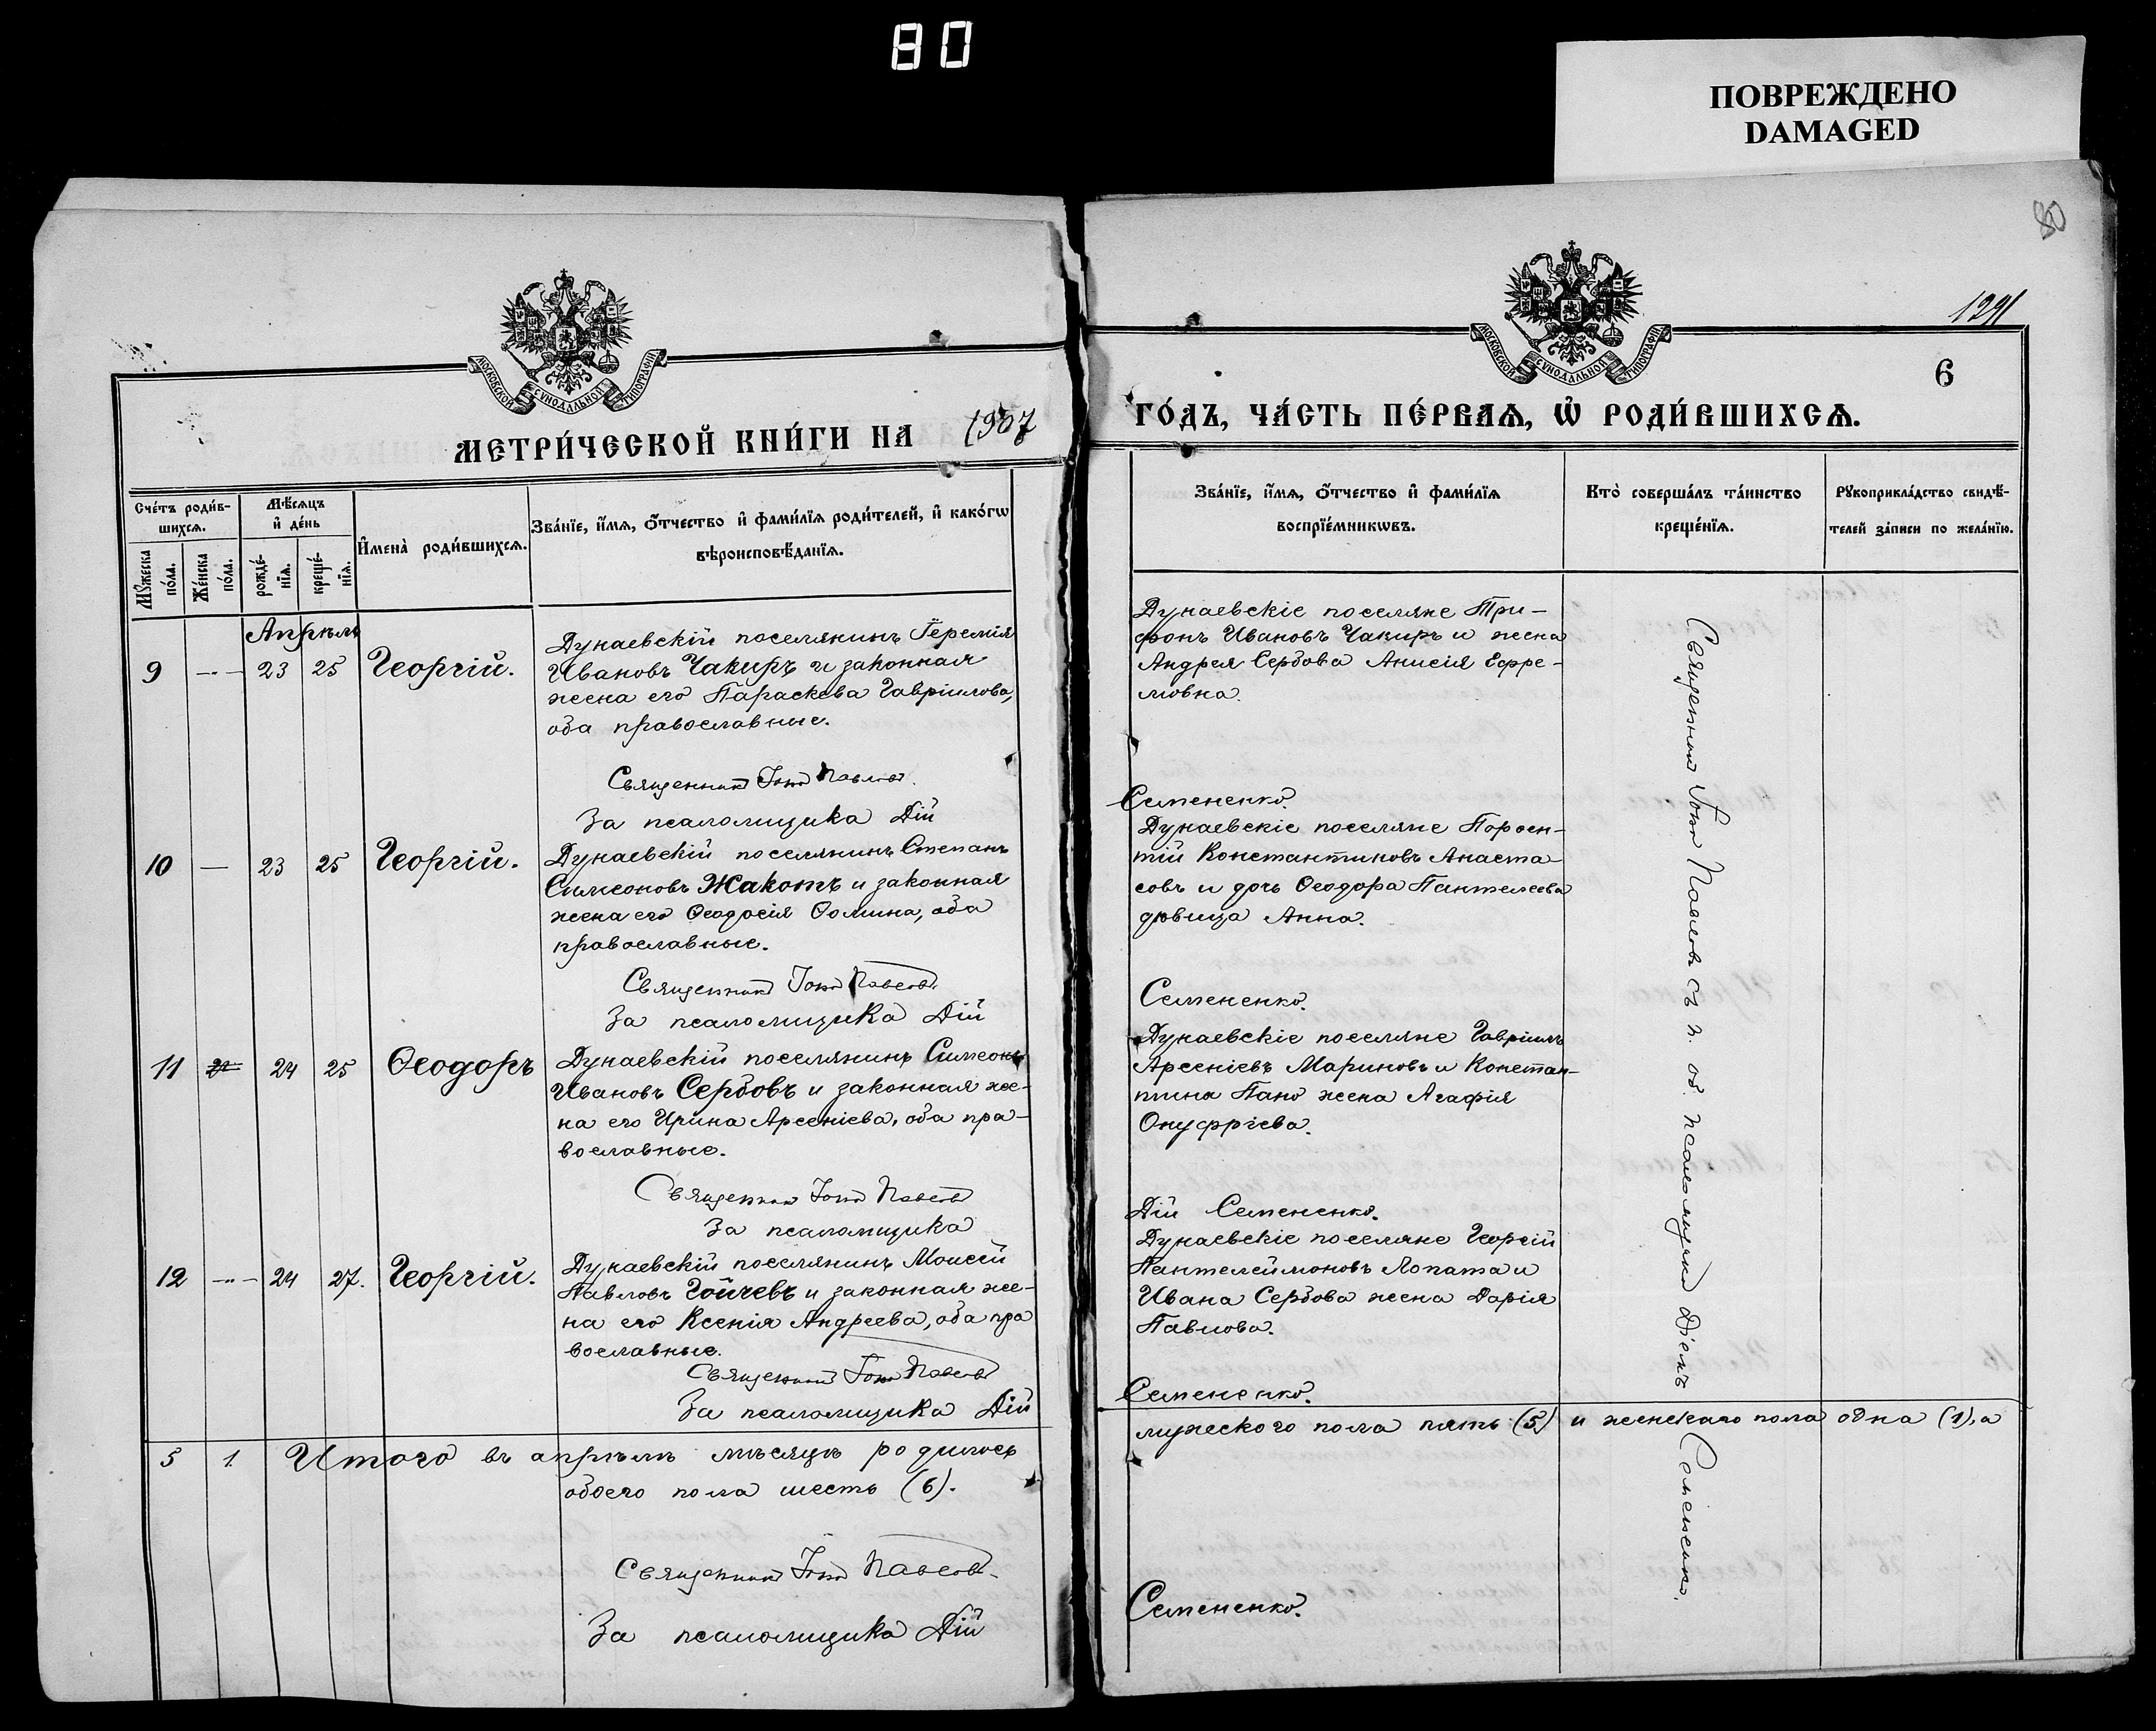 80
ПОВРЕЖДЕНО
DAMAGED
80
1291
МОСКОВСКОЙ СУНОДАЛЬНОЙ ТИПОГРАФІИ
МОСКОВСКОЙ СУНОДАЛЬНОЙ ТИПОГРАФІИ
6
МЕТРИ́ЧЕСКОЙ КНИ́ГИ НА 1907
ГО́ДЪ, ЧА́СТЬ ПЕ́РВАЯ, Ѡ҆ РОДИ́ВШИХСЯ.
Сче́тъ роди́в-
шихся.
Мꙋ́жеска по́ла.
Же́нска по́ла.
Мѣ́сяцъ
и҆ де́нь
рожде́-
нїя.
креще́-
нїя.
И҆мена̀ роди́вшихся.
Зва́нїе, и҆́мя, ѻ҆́тчество и҆ фами́лїя роди́телей, и҆ како́гѡ
вѣроисповѣ́данїя.
Зва́нїе, и҆́мя, ѻ҆́тчество и҆ фами́лїя
воспрїе́мникѡвъ.
Кто̀ соверша́лъ та́инство
креще́нїя.
Рꙋкоприкла́дство свидѣ́-
телей за́писи по жела́нїю.
Апрѣль
9 -"- 23 25 Георгій.
Дунаевскій поселянинъ Іеремія
Ивановъ Чакиръ и законная
жена его Параскева Гавріилова,
оба православные.
Священникъ Іоаннъ Павловъ.
За псаломщика Дій
Дунаевскіе поселяне Три-
фонъ Ивановъ Чакиръ и жена
Андрея Сербова Анисія Ефре-
мовна.
Семененко.
10 — 23 25 Георгій.
Дунаевскій поселянинъ Степанъ
Симеоновъ Жакотъ и законная
жена его Ѳеодосія Ѳомина, оба
православные.
Священникъ Іоаннъ Павловъ.
За псаломщика Дій
Дунаевскіе поселяне Пороен-
тій Константиновъ Анаста-
совъ и дочь Ѳеодора Пантелеева
дѣвица Анна.
Семененко.
11 24 25 Ѳеодоръ
Дунаевскій поселянинъ Симеонъ
Ивановъ Сербовъ и законная же-
на его Ирина Арсеніева, оба пра-
вославные.
Священникъ Іоаннъ Павловъ
За псаломщика
Дунаевскіе поселяне Гавріилъ
Арсеніевъ Мариновъ и Констан-
тина Пано жена Агафія
Онуфріева.
Дій Семененко.
12 -"- 24 27. Георгій.
Дунаевскій поселянинъ Моисей
Павловъ Гойчевъ и законная же-
на его Ксенія Андреева, оба пра
вославные.
Священникъ Іоаннъ Павловъ
За псаломщика Дій
Дунаевскіе поселяне Георгій
Пантелеймоновъ Лопата и
Ивана Сербова жена Дарія
Павлова.
Семененко.
Священникъ Іоаннъ Павловъ съ и. об. псаломщика Діемъ Семененко.
5 1. Итого въ апрѣлѣ мѣсяцѣ родилось
мужеского пола пять (5) и женскаго пола одна (1), а
обоего пола шесть (6).
Священникъ Іоаннъ Павловъ.
За псаломщика Дій
Семененко.